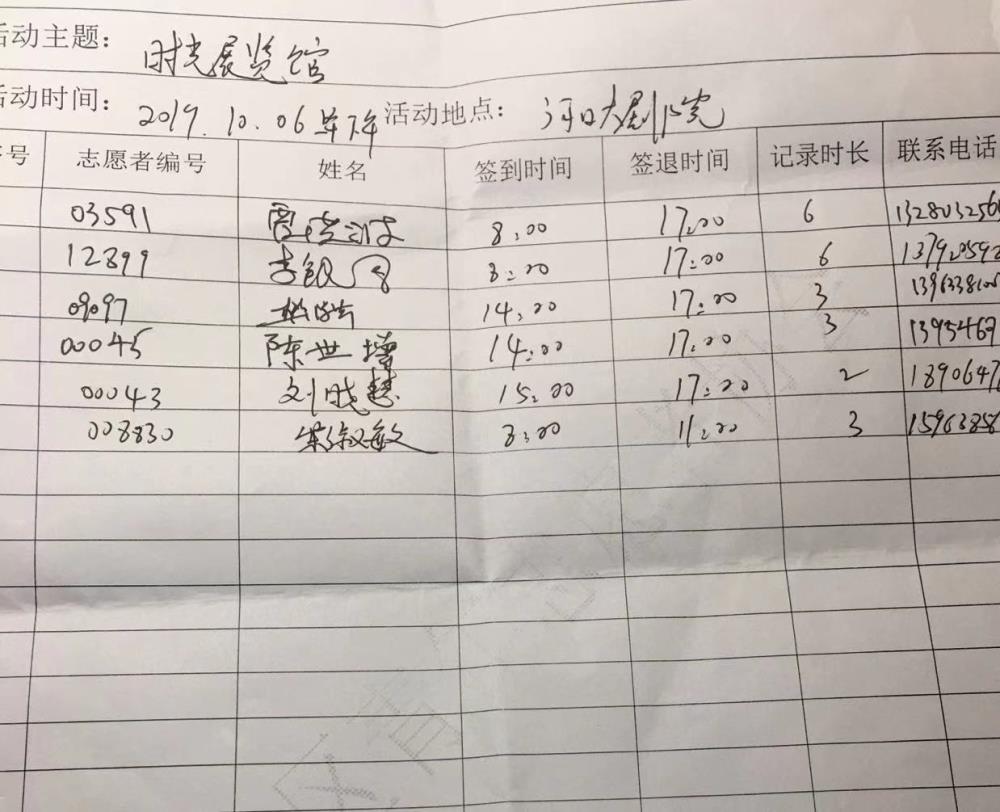 活动主题： 时光展览馆
活动时间： 2019.10.06 活动地点： 河口大剧院
号 志愿者编号 姓名 签到时间 签退时间 记录时长 联系电话
03591 8:00 17:00 6 1328032560
12899 李银 8:00 17:00 6
09097 14:00 17:00 3
00045 陈世增 14:00 17:00 3 1395467
00043 刘晓慧 15:00 17:00 2 1890647
008830 敏 8:00 11:00 3 15963858